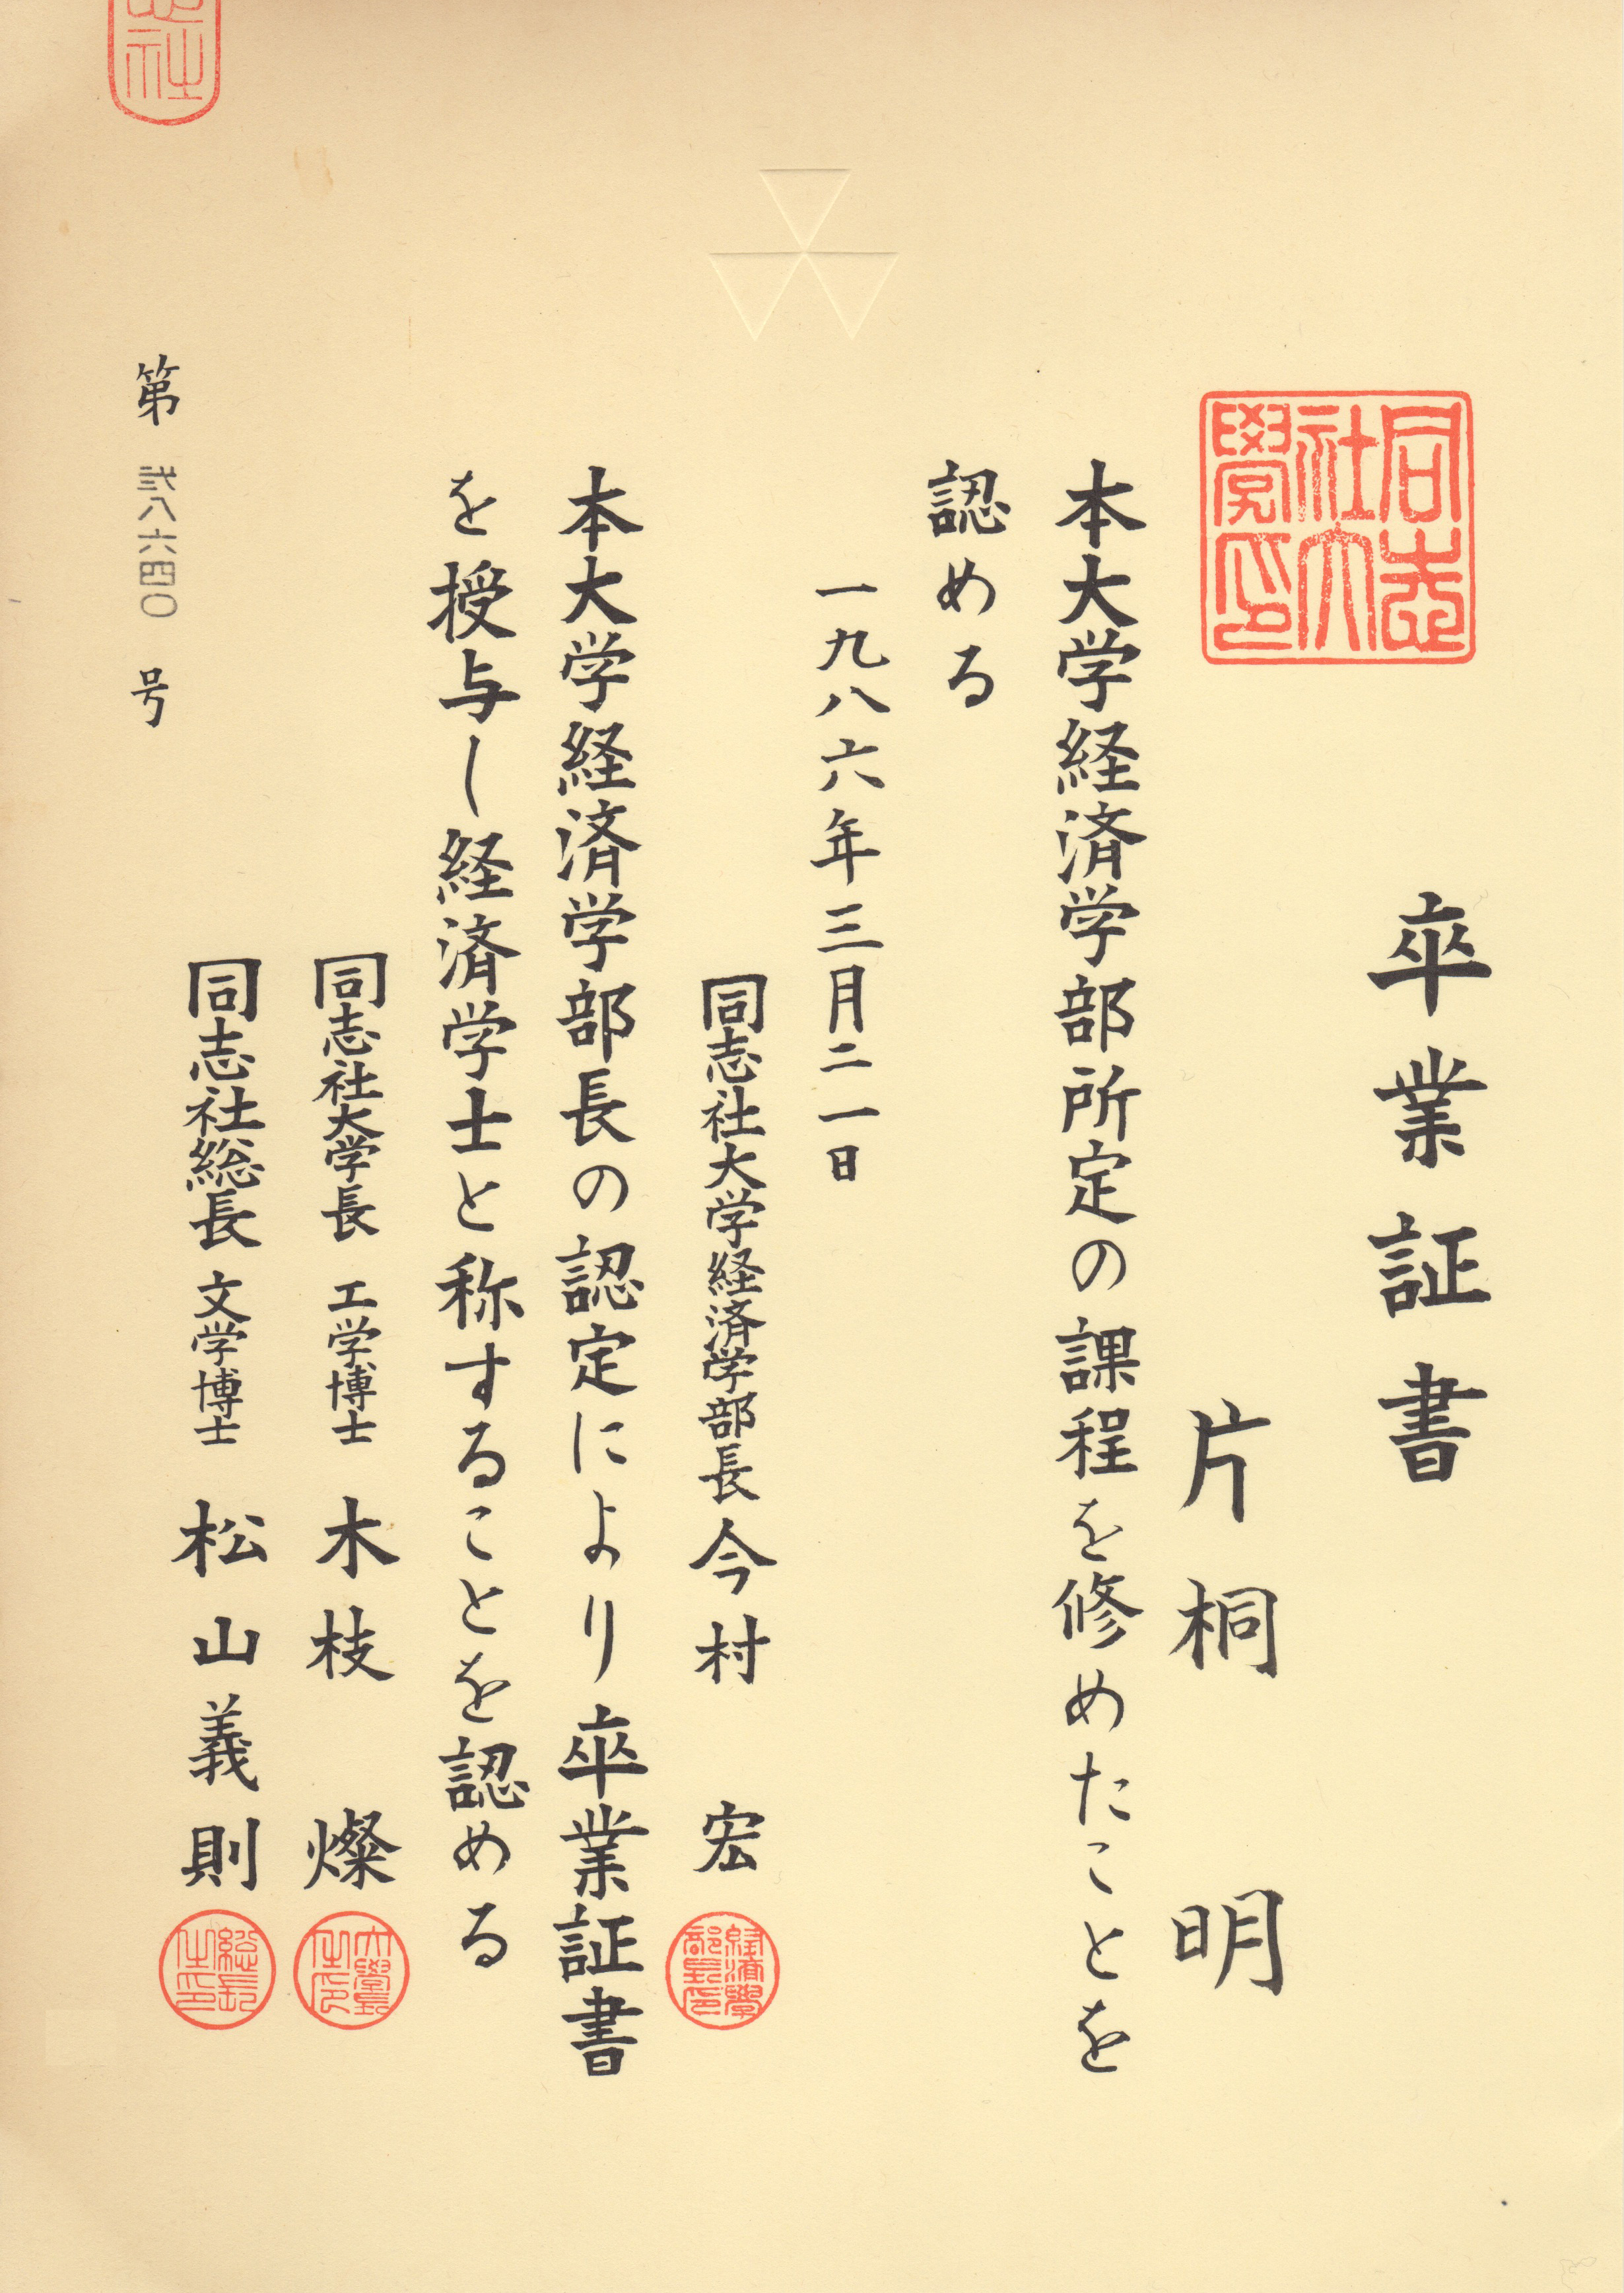 卒業証書
同志社大学印
片桐 明
本大学経済学部所定の課程を修めたことを
認める
一九八六年三月二一日
同志社大学経済学部長 今村 宏
経済学部長印
本大学経済学部長の認定により卒業証書
を授与し経済学士と称することを認める
同志社大学長 工学博士 木枝 燦
大学長之印
同志社総長 文学博士 松山義則
総長之印
第 弐八六四〇 号